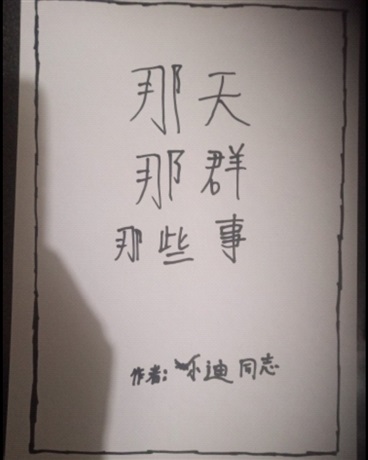 那天
那群
那些事
作者：小迪同志